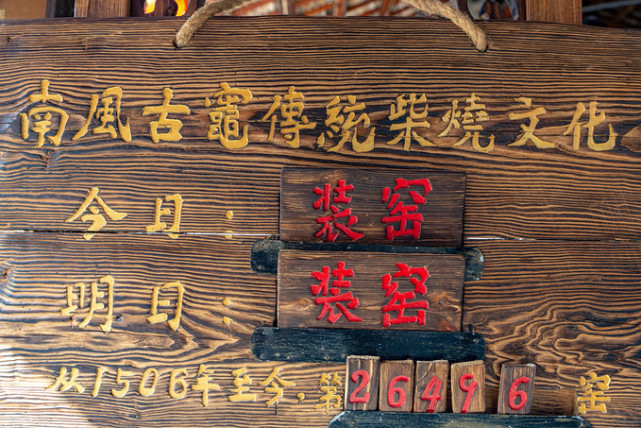 南風古竈傳統柴燒文化
今日：装窑
明日：装窑
从1506年至今，第26496窑